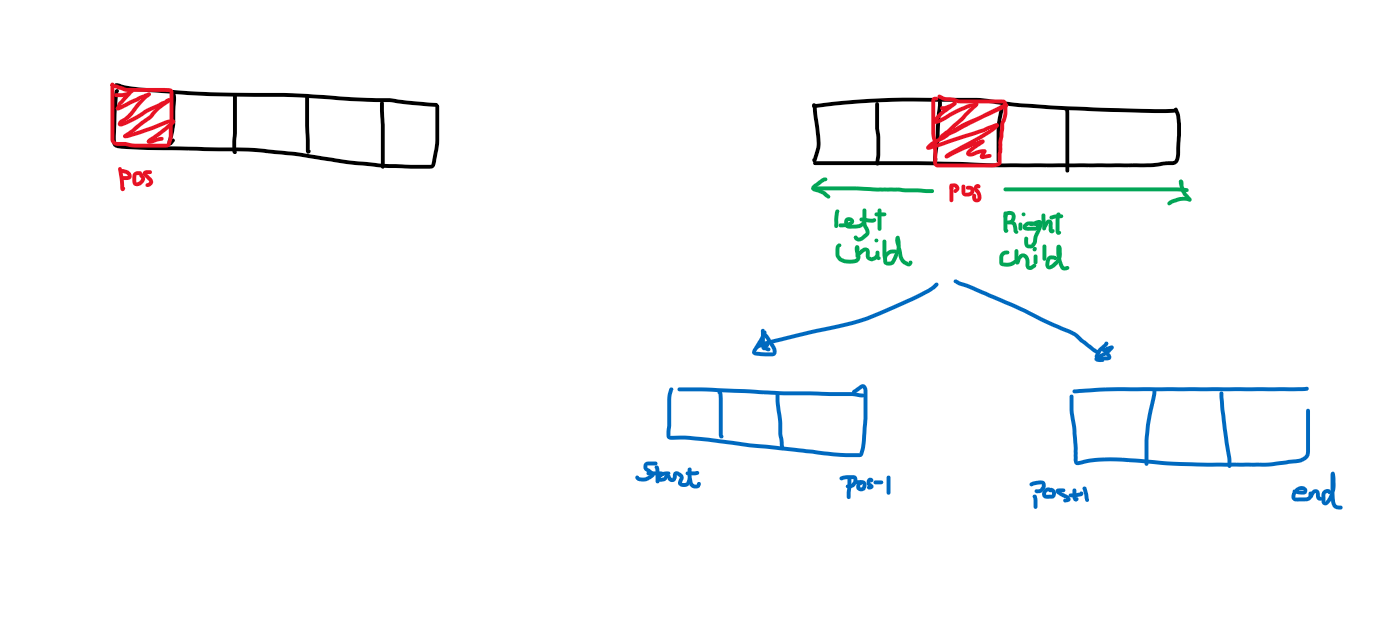 pos
pos
Left
child
Right
child
Start
pos-1
pos+1
end